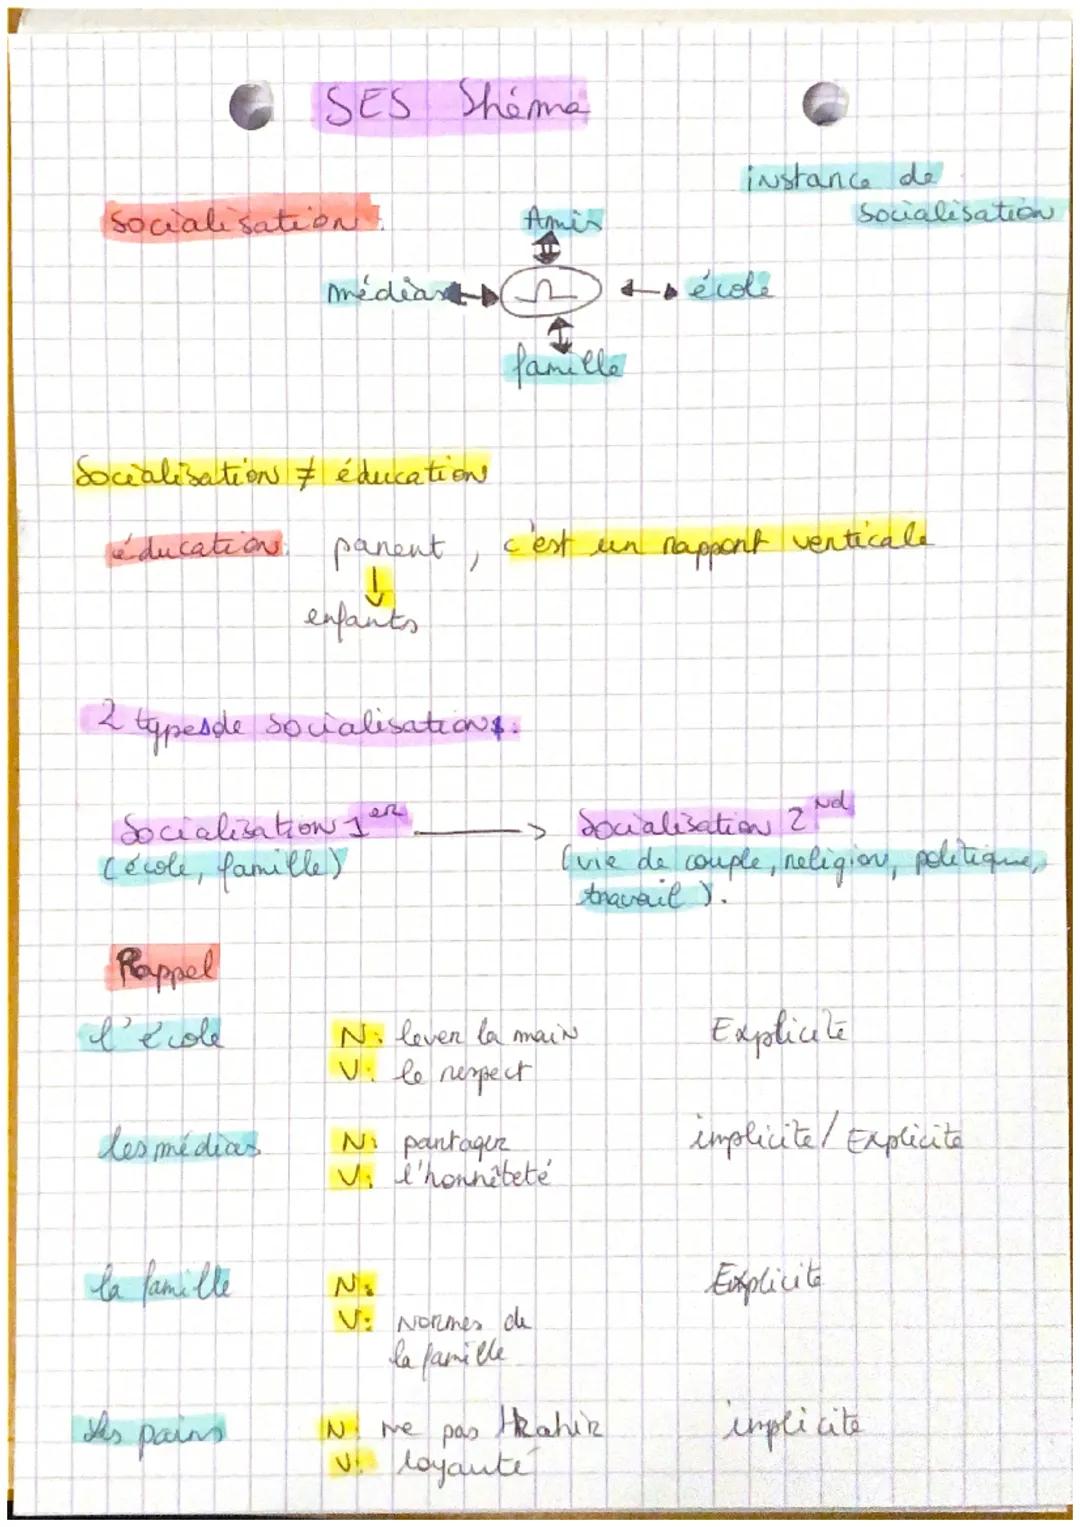 SES Shéma
instance de
socialisation
socialisation:
Amis
médias
école
famille
Socialisation ≠ éducation
éducation: parent, c'est un rapport verticale
enfants
2 types de socialisations:
Socialisation 1er → Socialisation 2nd
(école, famille) (vie de couple, religion, politique,
travail).
Rappel
l'école N: lever la main Explicite
V: le respect
les médias N: partager implicite/Explicite
V: l'honnêteté
la famille N: Explicite
V: Normes de
la famille
les pairs N: ne pas trahir implicite
V: loyauté